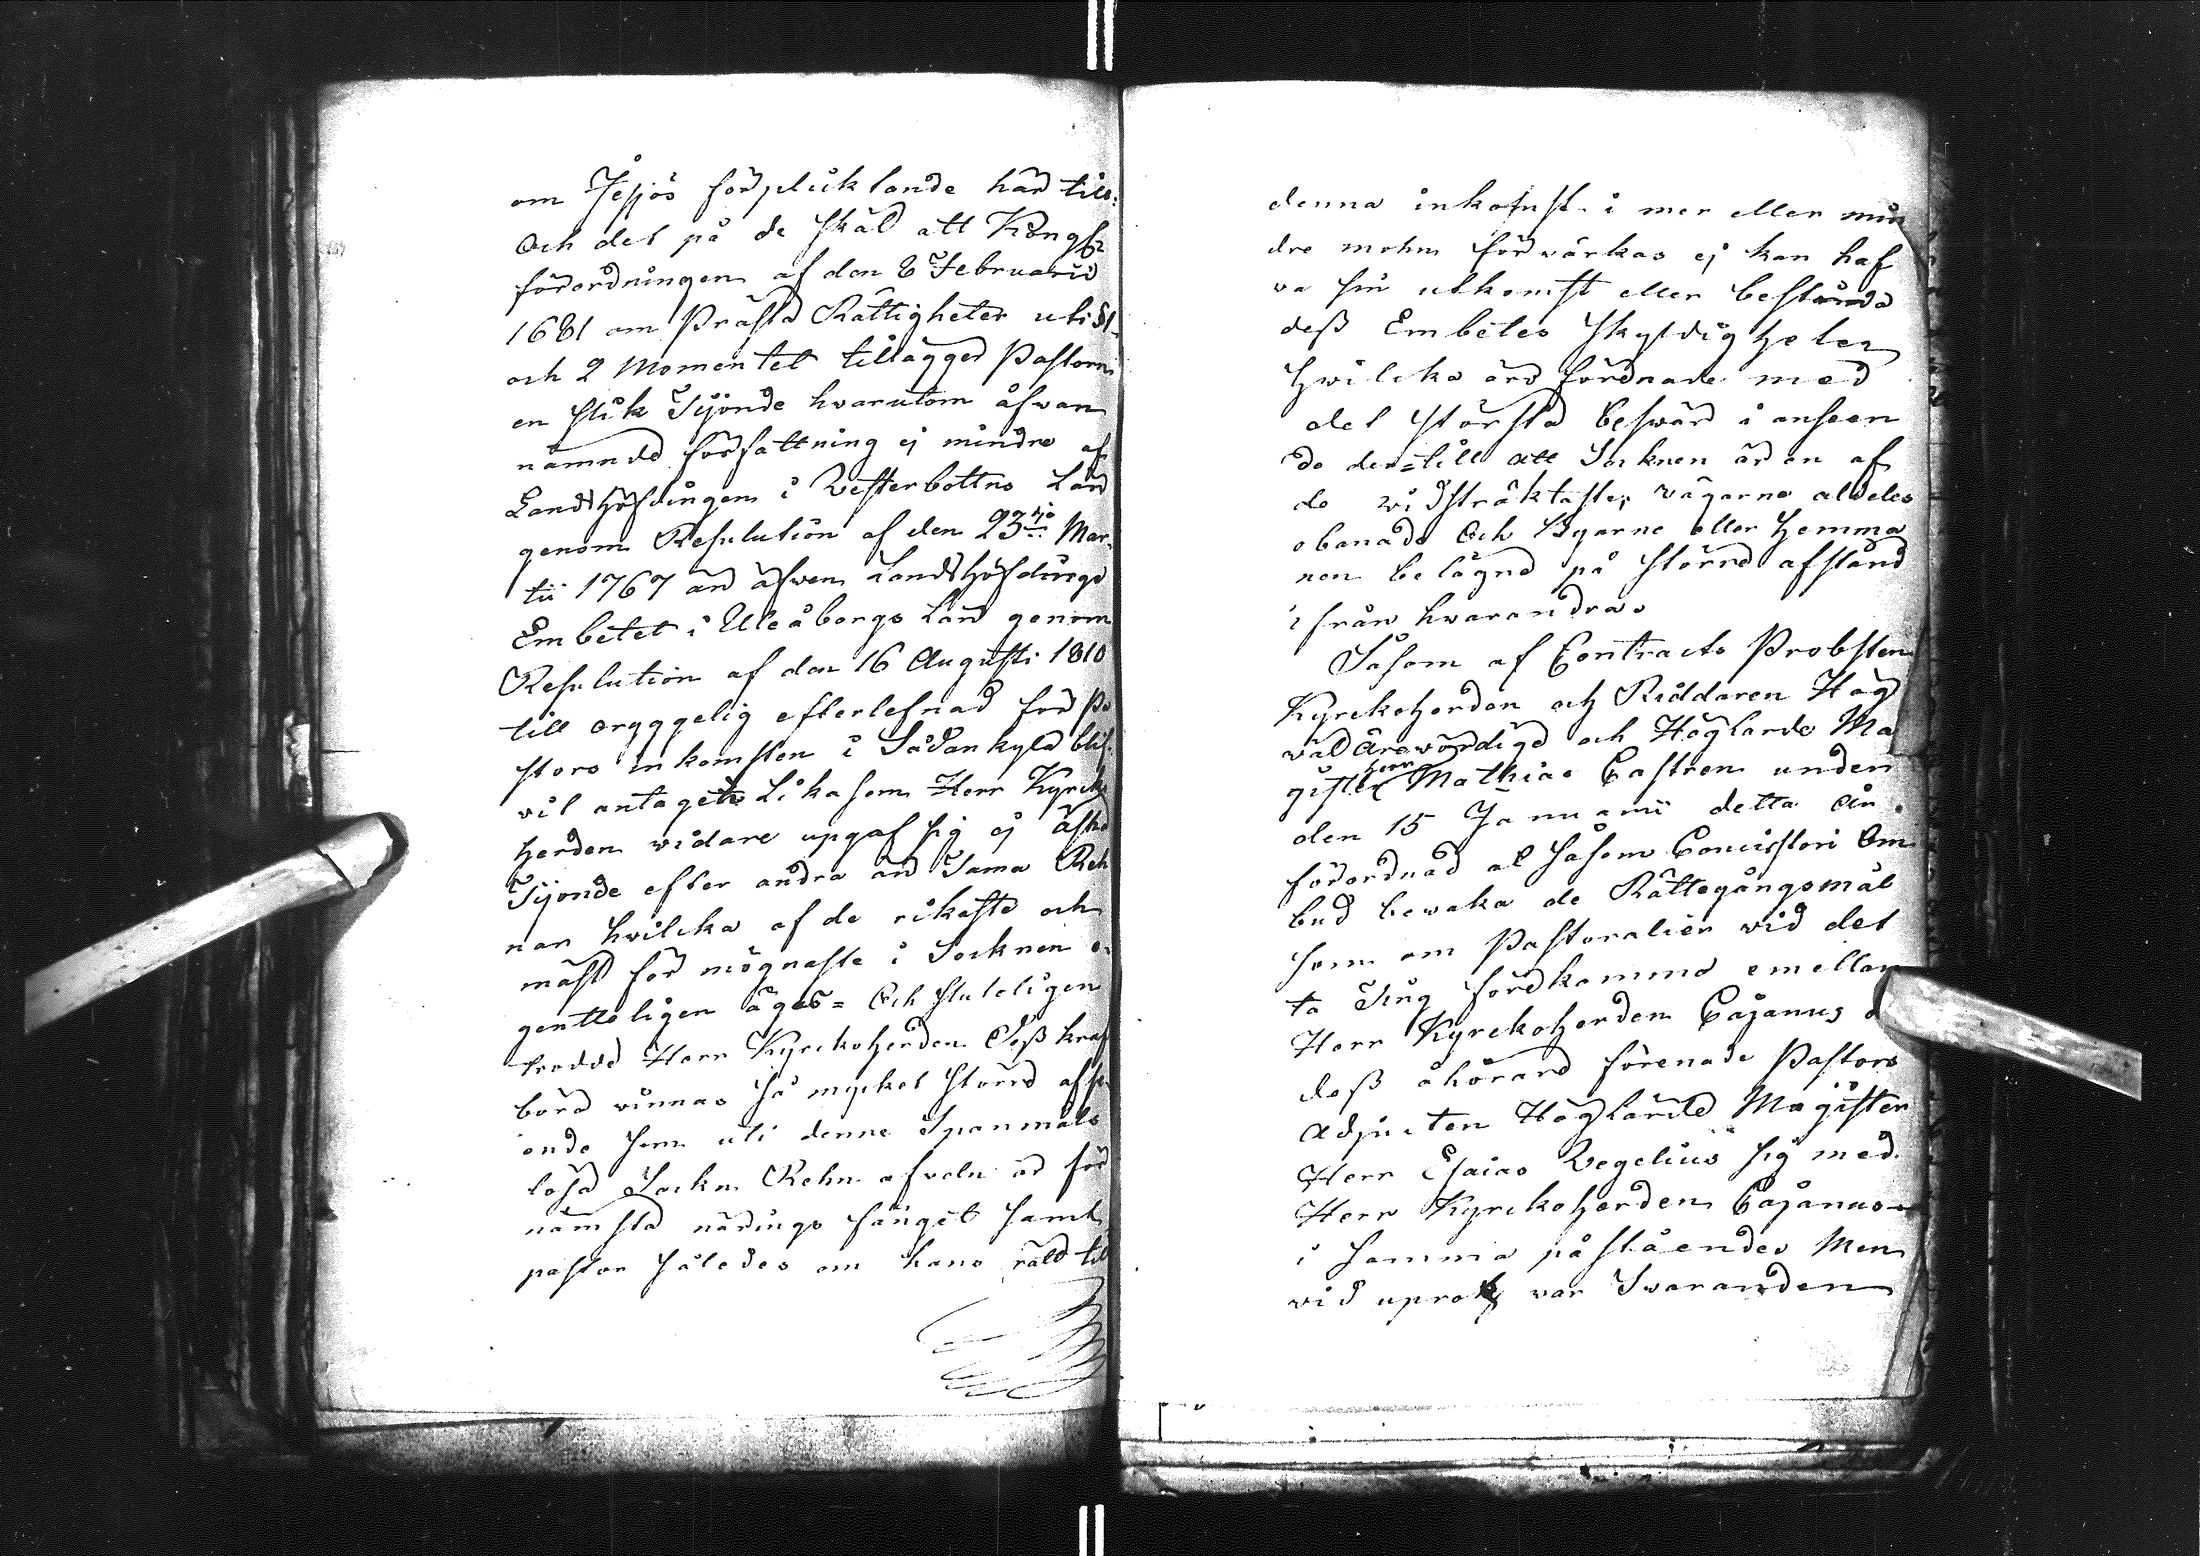 om Jesiös förpliktande här till:
Och det på de skäl att Kongl:
förordningen af den 8 Februarii
1681 om Prästd Rättigheter uti §1
och 2 Momentet tillägged Pastorn
en slik Tijonde hvarutom åfvan
nämnde författning ej mindre af
Landshöfdingen i Vesterbottns Län
genom Resolution af den 23tjo Mar,
tii 1767 än äfven Landshöfdinge
Embetet i Uleåborgs Län genom
Resolution af den 16 Augusti 1810
till orygggelig efterlefnad för Pa
stors inkomsten i Sodankylä blif.
vit antaget Likasom Herr Kyrcko
herden vidare upgaf sig ej äska
Tijonde efter andra än Tama Reh
nar hvilcka af de rikaste och
mäst förmögnaste i Socknen e
gentteligen äges= Och sluteligen
trodde Herr Kyrckoherden Deß kraf
börd vinnas så myckel större afse
ende som uti denne Spanmåls
lösa Sockn Rehn afveln är för
nämsta närings fånget samt
pastor således om hans rätt til
denna inkomst i mer eller min
dre mohn förvärkas ej kan haf
va sin utkomst eller bestrida
deß Embetes Skyldigheter
hvilcka äro förenade med
det största besvär i anseen
de der=till att Socknen är en af
de vidsträktaste, vägarne aldeles
obanade Och Byarne eller hemma
nen belägne på större afstånd
ifrån hvarandra.
Såsom af Contracts Probsten
Kyrckoherden och Riddaren Hög
väl Ärevördige och Höglärde Ma
gister herr Mathias Castren under
den 15 Januarii detta år
förordnad at såsom Concistori Om
bud bevaka de Rättegångsmål
som om Pastoralier vid det
ta Ting förekomma emellan
Herr Kyrckoherden Cajanus o
deß åhörare förenade Pastors
Adjuncten Höglärde Magister
Herr Esaias Vegelius sig med
Herr Kyrckoherden Cajanus
i samma påståendes Men
vid uprop var Svaranden